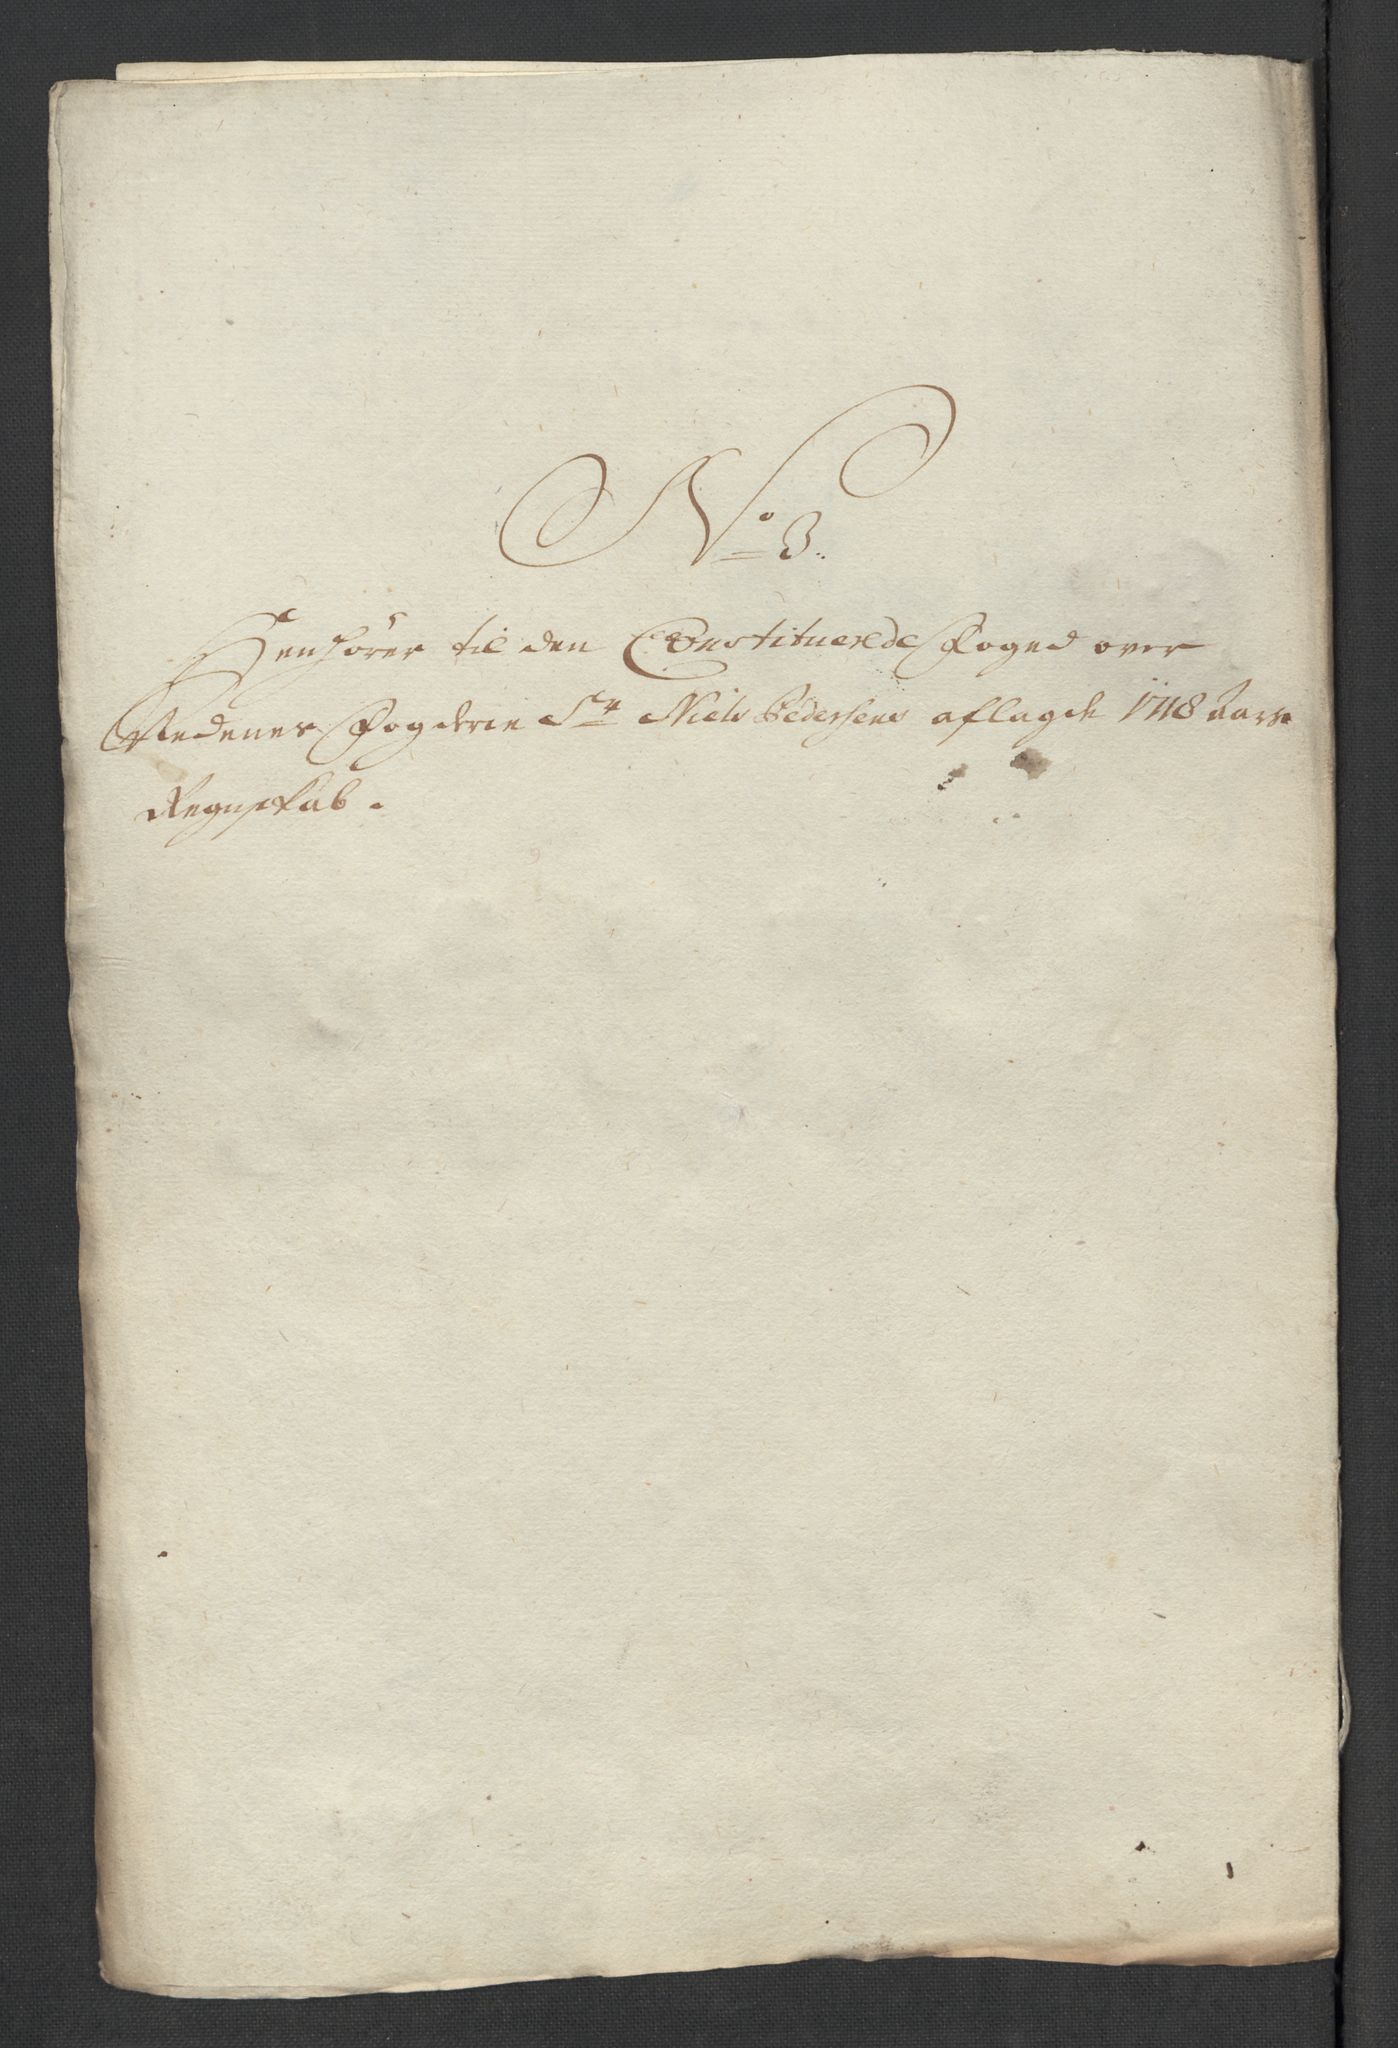 No 3.
Henhører til den Constituerede Foged over
Nedenes Fogderie Sr Niels Pedersens aflagde 1718 Aars
Regnskab.